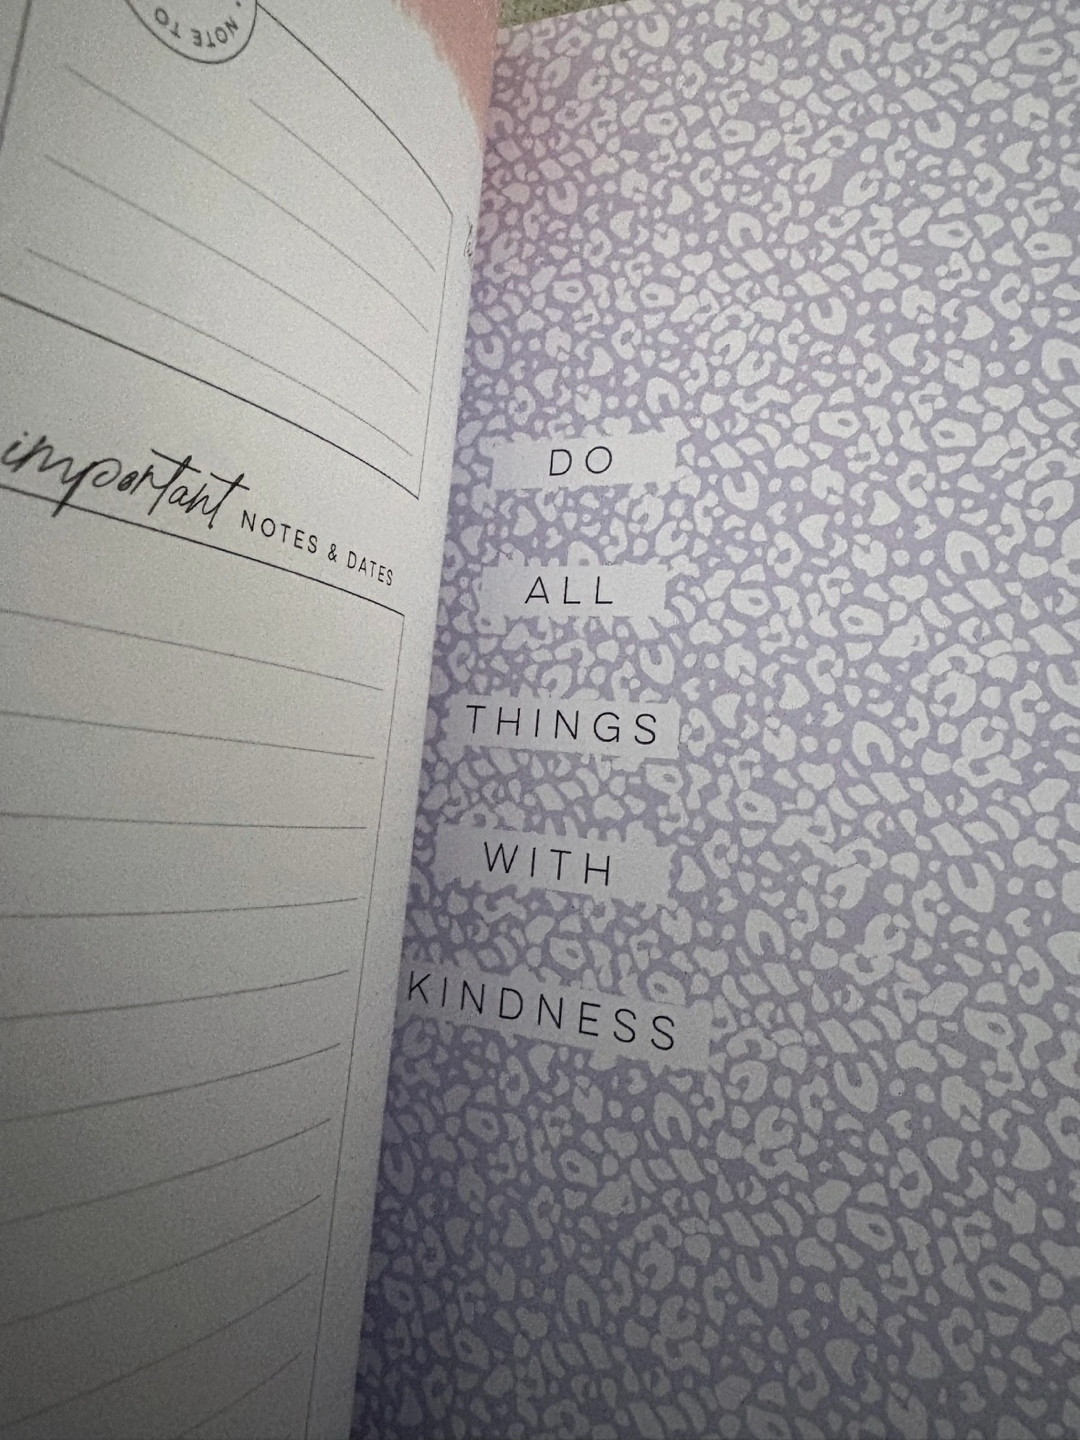 NOTE TO
important NOTES & DATES
DO
ALL
THINGS
WITH
KINDNESS